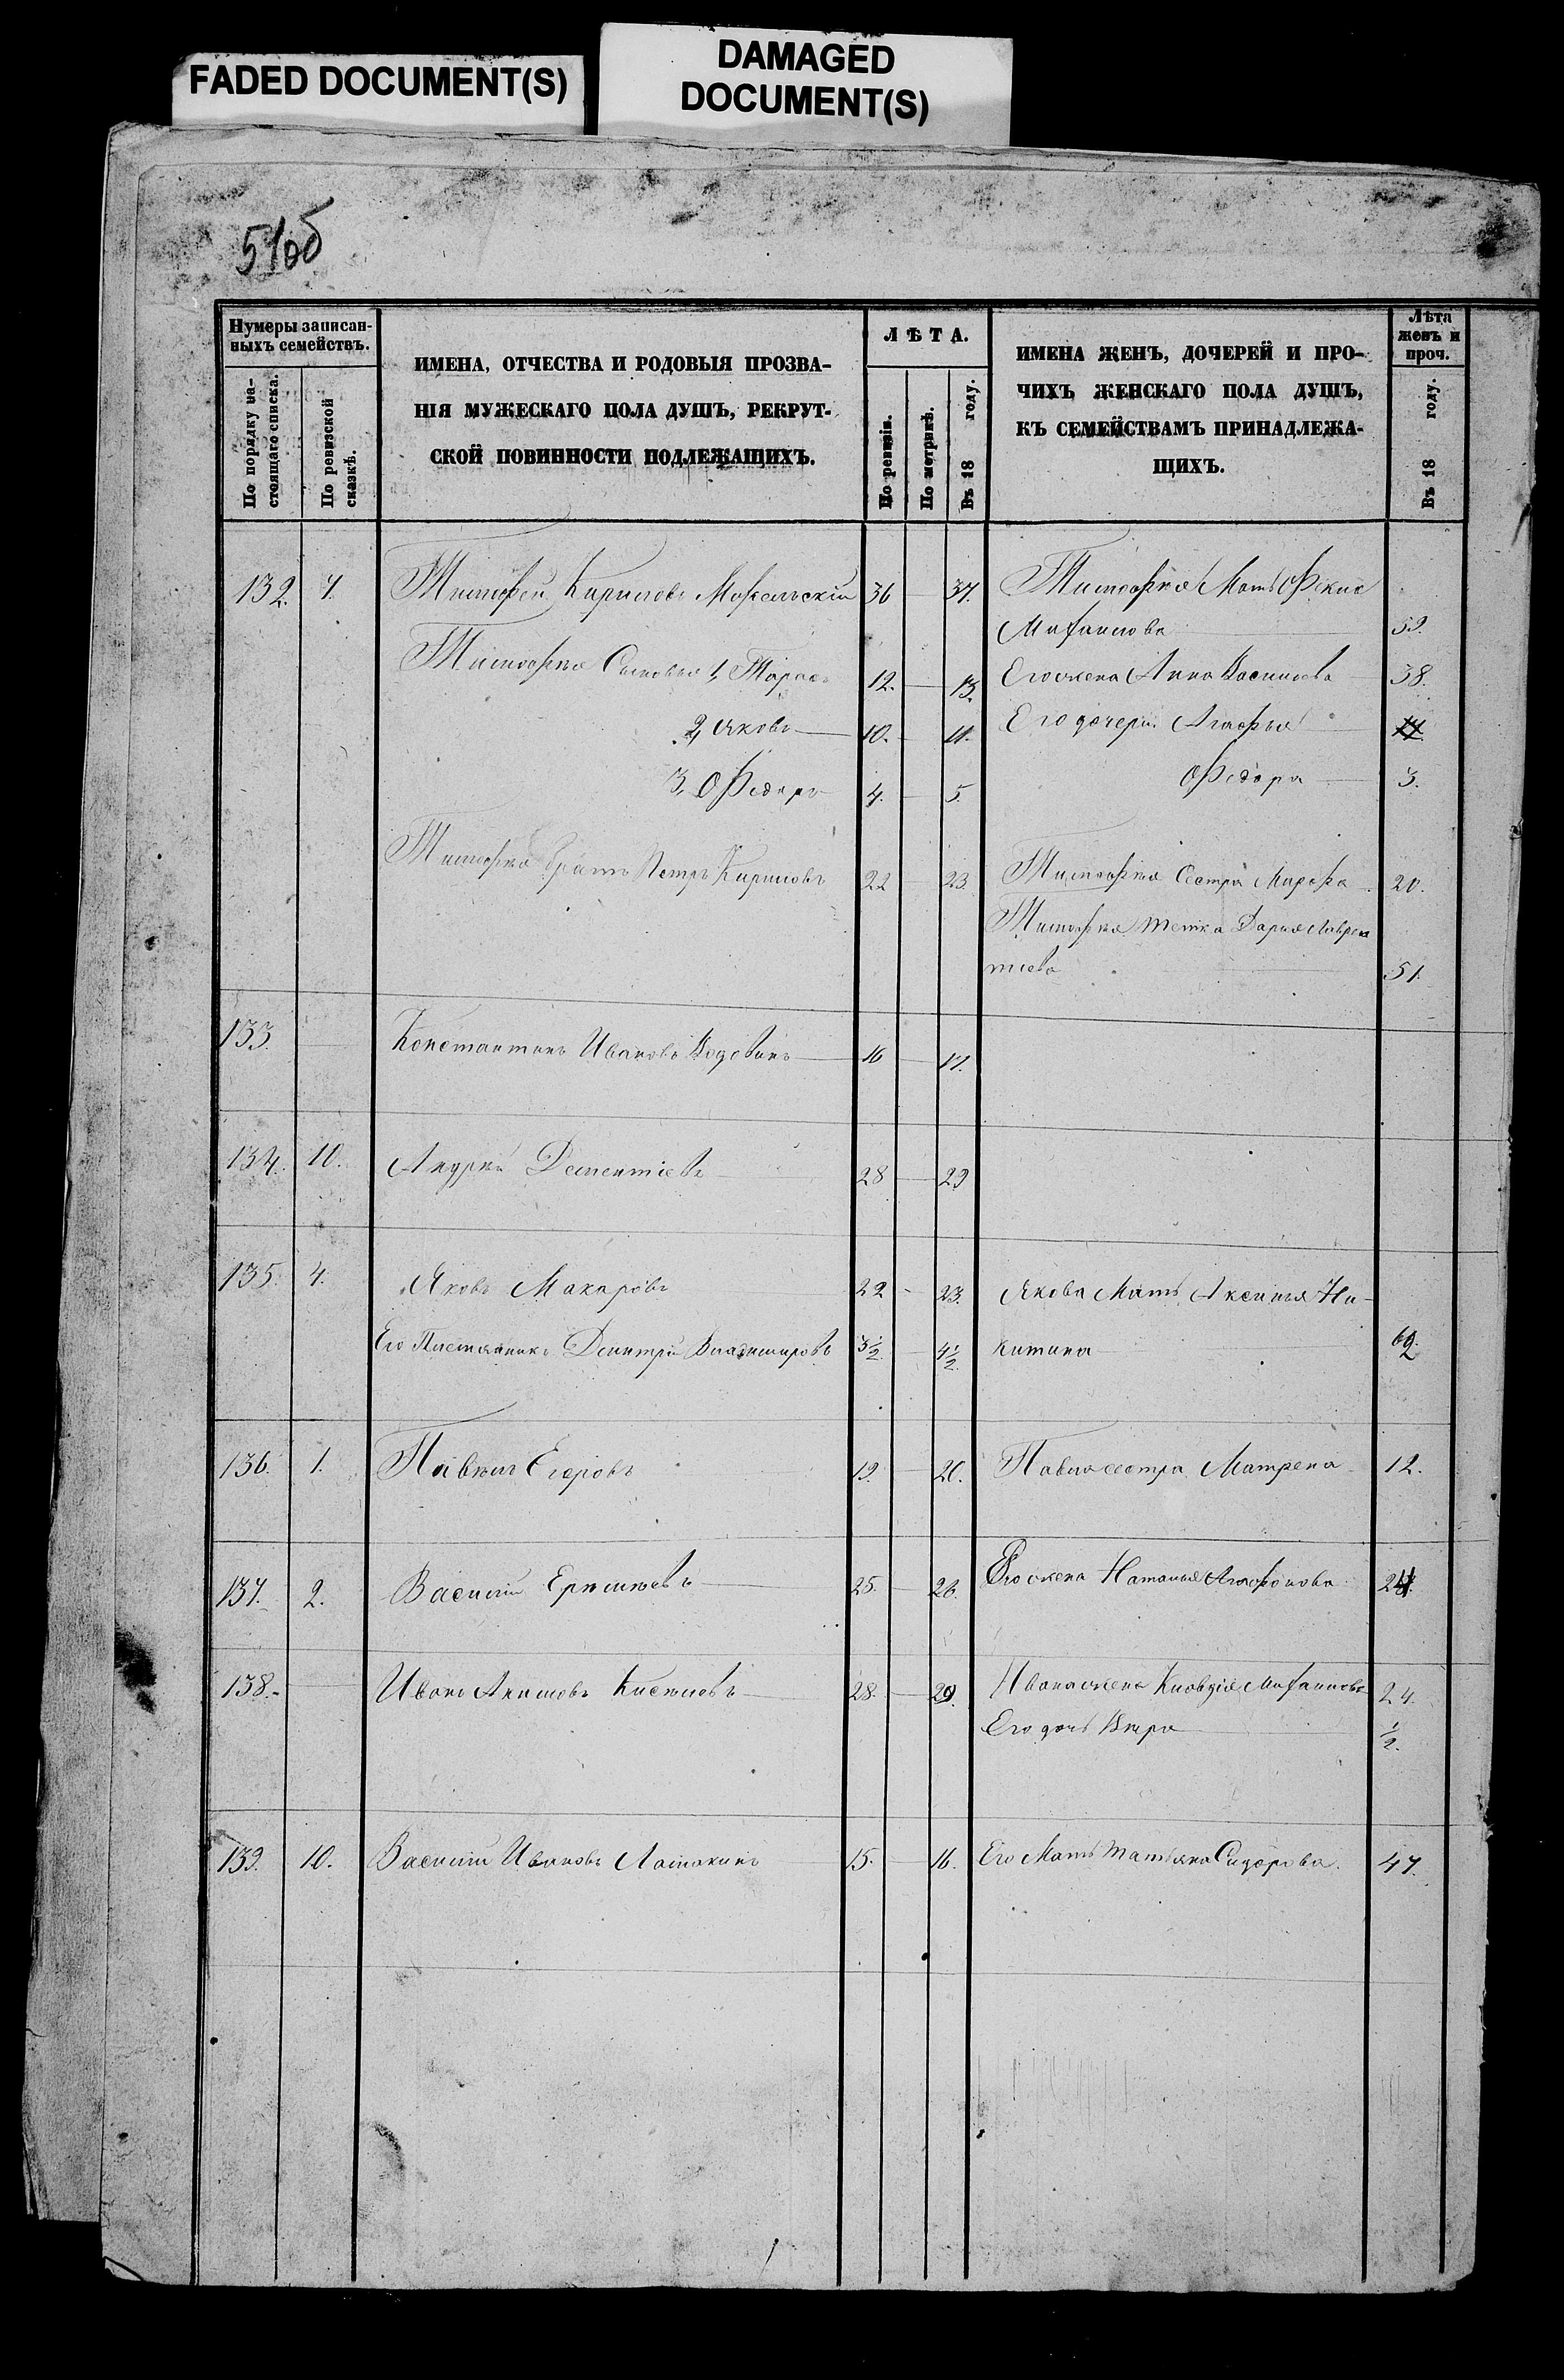 FADED DOCUMENT(S)
DAMAGED
DOCUMENT(S)
51об
Нумеры записан-
ныхъ семействъ.
По порядку на-
стоящаго списка.
По ревизской
сказкѣ.
ИМЕНА, ОТЧЕСТВА И РОДОВЫЯ ПРОЗВА-
НІЯ МУЖЕСКАГО ПОЛА ДУШЪ, РЕКРУТ-
СКОЙ ПОВИННОСТИ ПОДЛЕЖАЩИХЪ.
ЛѢТА.
По ревизіи.
По метрикѣ.
Въ 18 году.
ИМЕНА ЖЕНЪ, ДОЧЕРЕЙ И ПРО-
ЧИХЪ ЖЕНСКАГО ПОЛА ДУШЪ,
КЪ СЕМЕЙСТВАМЪ ПРИНАДЛЕЖА-
ЩИХЪ.
Лѣта
женъ и
проч.
Въ 18 году.
132. 7. Тимофей Кириловъ 36 37. Тимофея Мать
Михаилова 59.
Тимофея Сыновья 1, Тарасъ 12. 13. Его жена Анна Васильева 38.
2, Яковъ 10. 11. Его дочери Агафья
3, Федоръ 4. 5. Федора 3.
Тимофея братъ Петръ Кириловъ 22 23. Тимофея Сестра Марфа 20.
Тимофея тетка Дарья Лаврен
тьева 51.
133. Константинъ Ивановъ 16 17.
134. 10. Андрей Дементіевъ 28 29
135. 4. Яковъ Макаровъ 22 23. Якова Мать Аксинья Ни-
Его Племянникъ Дмитрій Владимировъ 3½ 4½ китина 62.
136. 1. Павелъ Егоровъ 19. 20. Павла сестра Матрена 12.
137. 2. Василій Ермиловъ 25. 26. Его жена Наталья Агафонова
138. Иванъ Акимовъ Киселевъ 28. 29. Ивана жена Клавдія Михаилова 24.
Его дочь Вера ½.
139. 10. Василій Ивановъ Латокинъ 15. 16. Его Мать Татьяна Сидорова. 47.